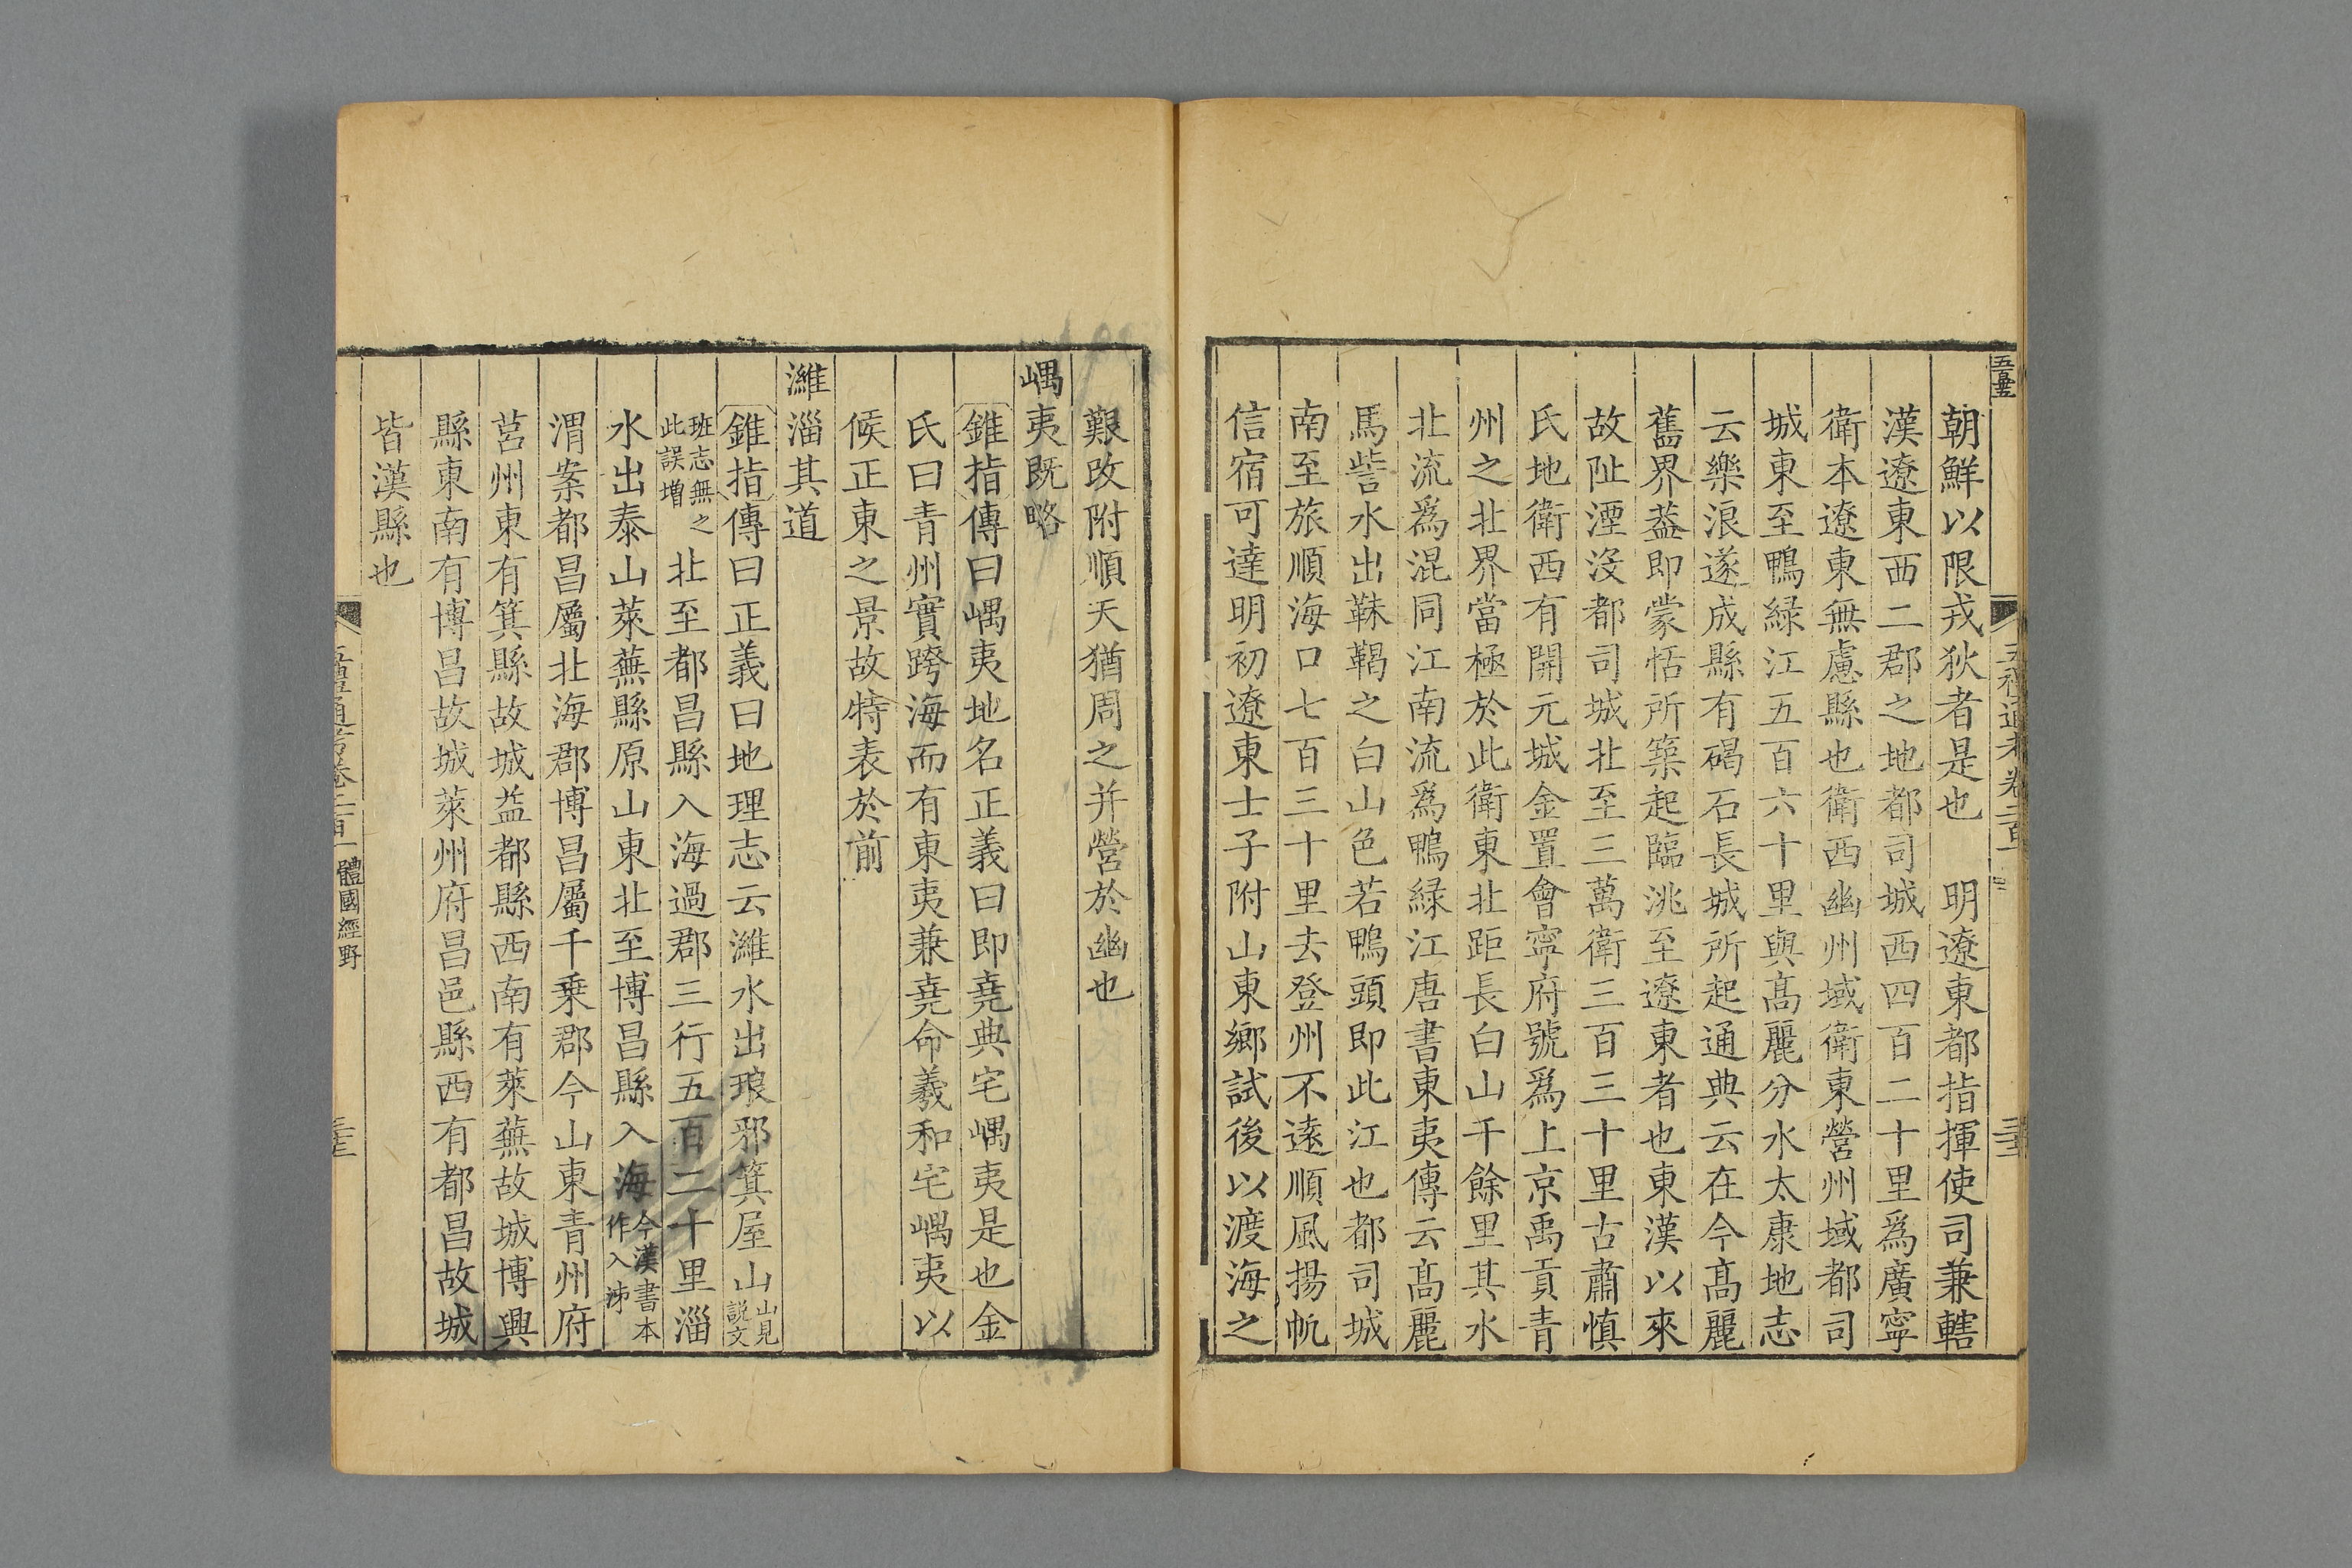 朝鮮以限戎狄者是也　明遼東都指揮使司兼轄
漢遼東西二郡之地都司城西四百二十里爲廣寧
衛本遼東無慮縣也衛西幽州域衛東營州域都司
城東至鴨緑江五百六十里與髙麗分水太康地志
云樂浪遂成縣有碣石長城所起通典云在今髙麗
舊界葢即蒙恬所築起臨洮至遼東者也東漢以來
故阯湮沒都司城北至三萬衛三百三十里古肅慎
氏地衛西有開元城金置會寧府號爲上京禹貢青
州之北界當極於此衛東北距長白山千餘里其水
北流爲混同江南流爲鴨緑江唐書東夷傳云髙麗
馬訾水出靺鞨之白山色若鴨頭即此江也都司城
南至旅順海口七百三十里去登州不遠順風揚帆
信宿可達明初遼東士子附山東鄉試後以渡海之
艱改附順天猶周之并營於幽也
嵎夷既略
錐指傳曰嵎夷地名正義曰即堯典宅嵎夷是也金
氏曰青州實跨海而有東夷兼堯命羲和宅嵎夷以
候正東之景故特表於前
濰淄其道
錐指傳曰正義曰地理志云濰水出琅邪箕屋山山見說文
班志無之此誤增北至都昌縣入海過郡三行五百二十里淄
水出泰山萊蕪縣原山東北至博昌縣入海今漢書本作入泲
渭案都昌屬北海郡博昌屬千乗郡今山東青州府
莒州東有箕縣故城益都縣西南有萊蕪故城博興
縣東南有博昌故城萊州府昌邑縣西有都昌故城
皆漢縣也
體國經野